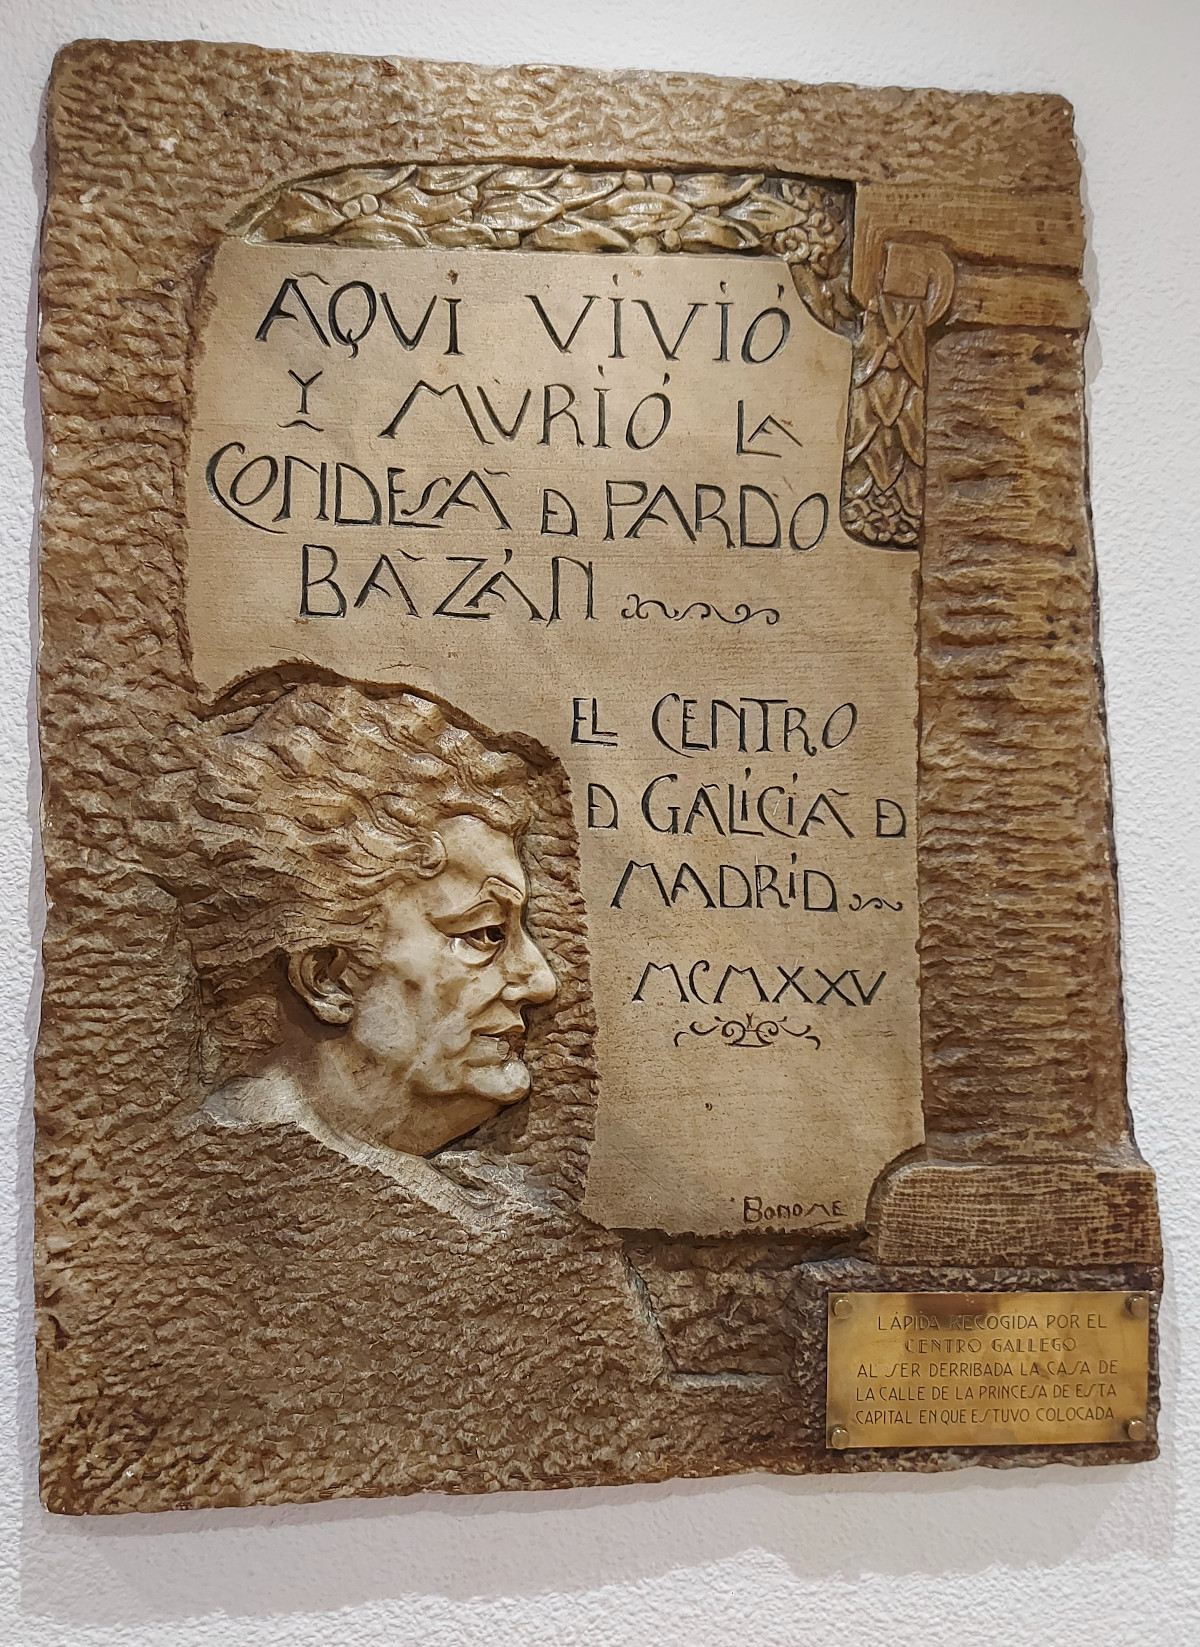 AQUI VIVIÓ
Y MURIÓ LA
CONDESA D PARDO
BAZÁN
EL CENTRO
D GALICIA D
MADRID
MCMXXV
BONOME
LÁPIDA RECOGIDA POR EL
CENTRO GALLEGO
AL SER DERRIBADA LA CASA DE
LA CALLE DE LA PRINCESA DE ESTA
CAPITAL EN QUE ESTUVO COLOCADA